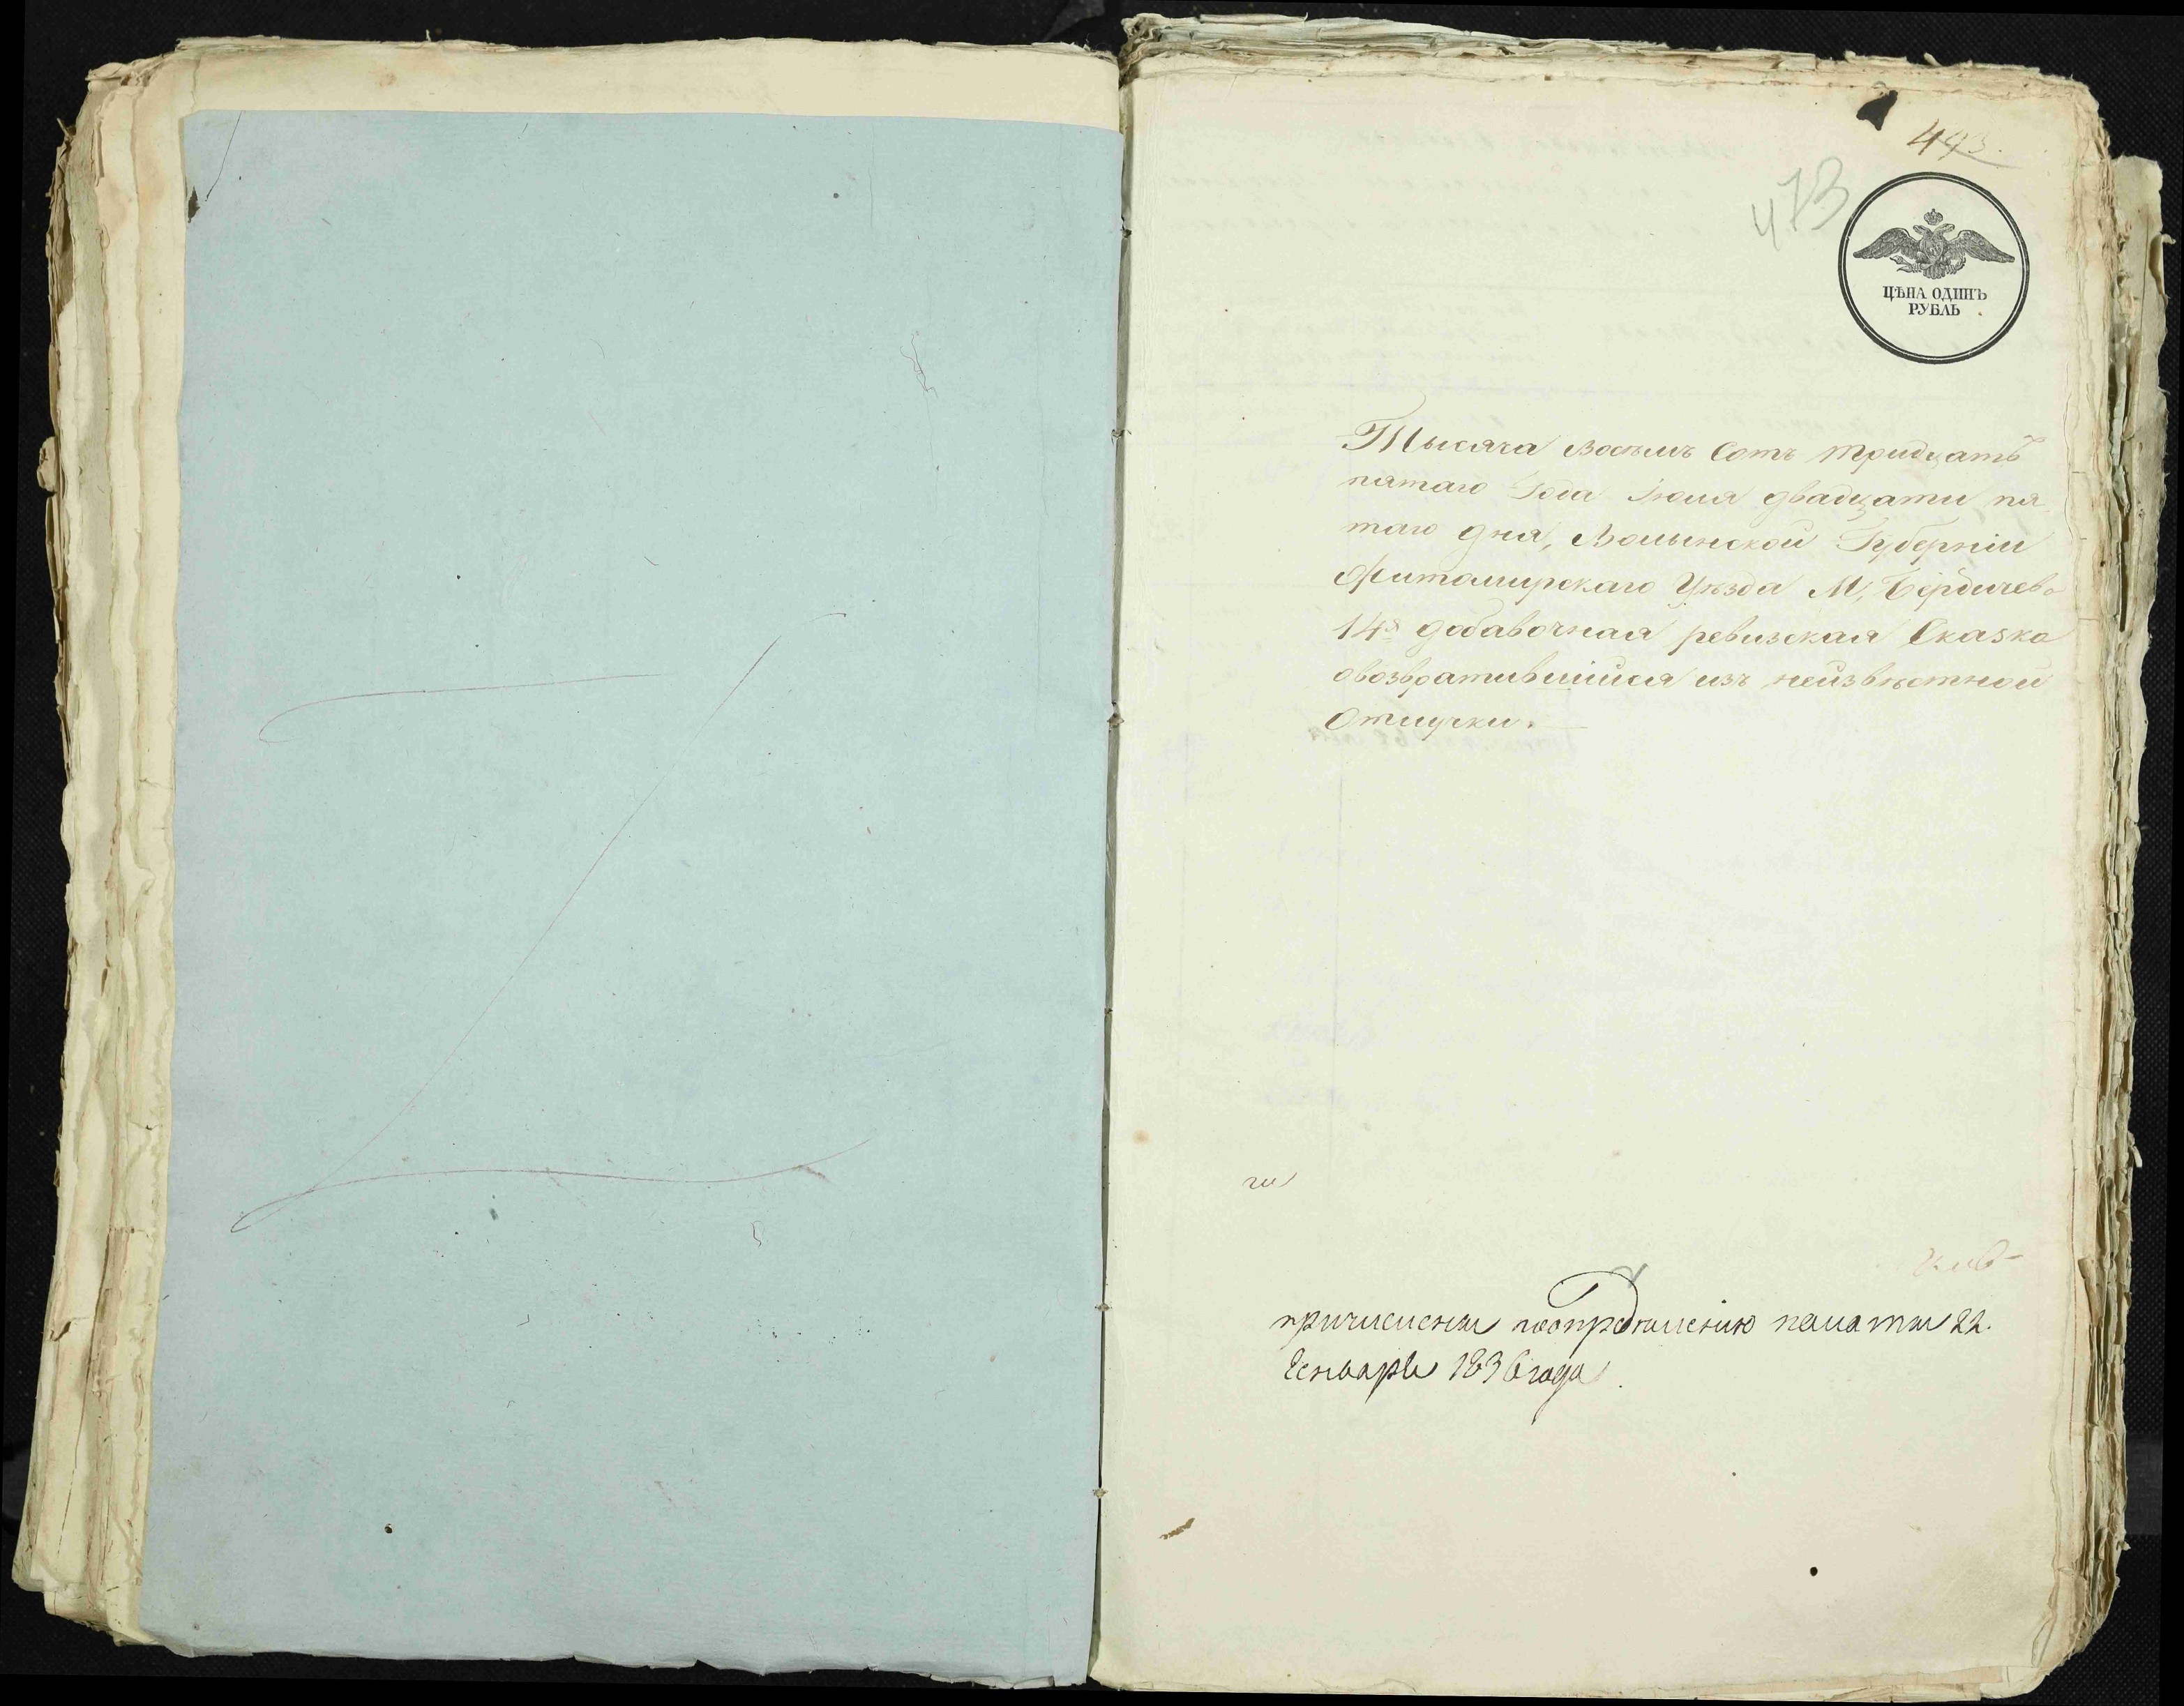 493.
473
ЦѢНА ОДИНЪ
РУБЛЬ
Тысяча восемъ Сотъ тридцать
пятаго Года Іюля двадцати пя
таго дня, Волынской Губерніи
Житомирскаго Уѣзда М, Бердичева
14я добавочная ревизская Сказка
овозвратившийся изъ неизвѣстной
Отлучки.
причислены поопредѣленію палаты 22.
Генваря 1836 года